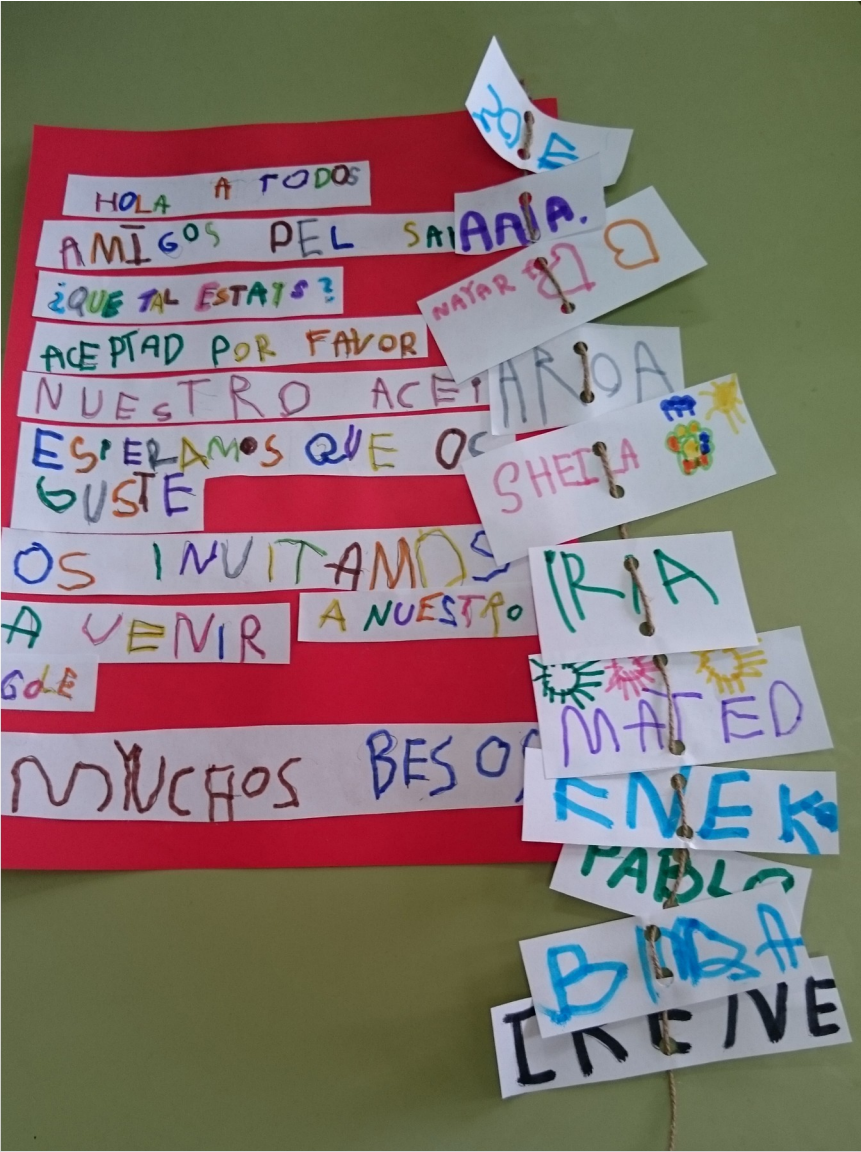 HOLA A TODOS
AMIGOS DEL SAL
¿QUE TAL ESTAIS?
ACEPTAD POR FAVOR
NUESTRO ACEI
ESPERAMOS QUE OS
GUSTE
OS INVITAMOS
A VENIR A NUESTRO
COLE
MUCHOS BESOS
ZOE
NAYAR
AROA
SHEILA
IRIA
MATEO
ENEK
PABLO
IRENE